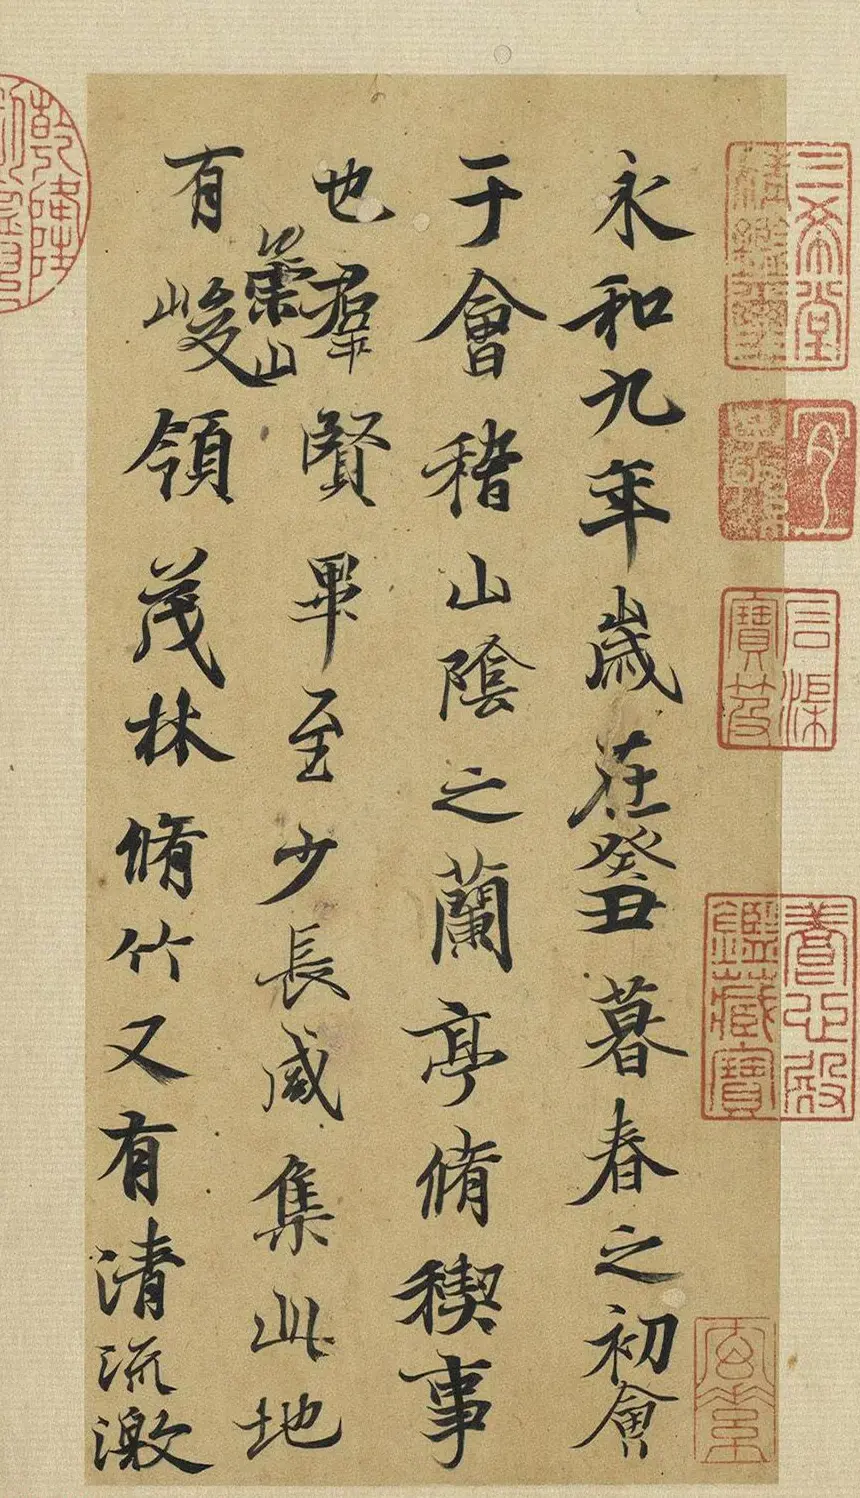 三希堂精鑑璽
宜子孫
石渠寶笈
養心殿鑑藏寶
永和九年歲在癸丑暮春之初會
于會稽山陰之蘭亭脩稧事
也羣賢畢至少長咸集此地
有崇山峻領茂林脩竹又有清流激
乾隆